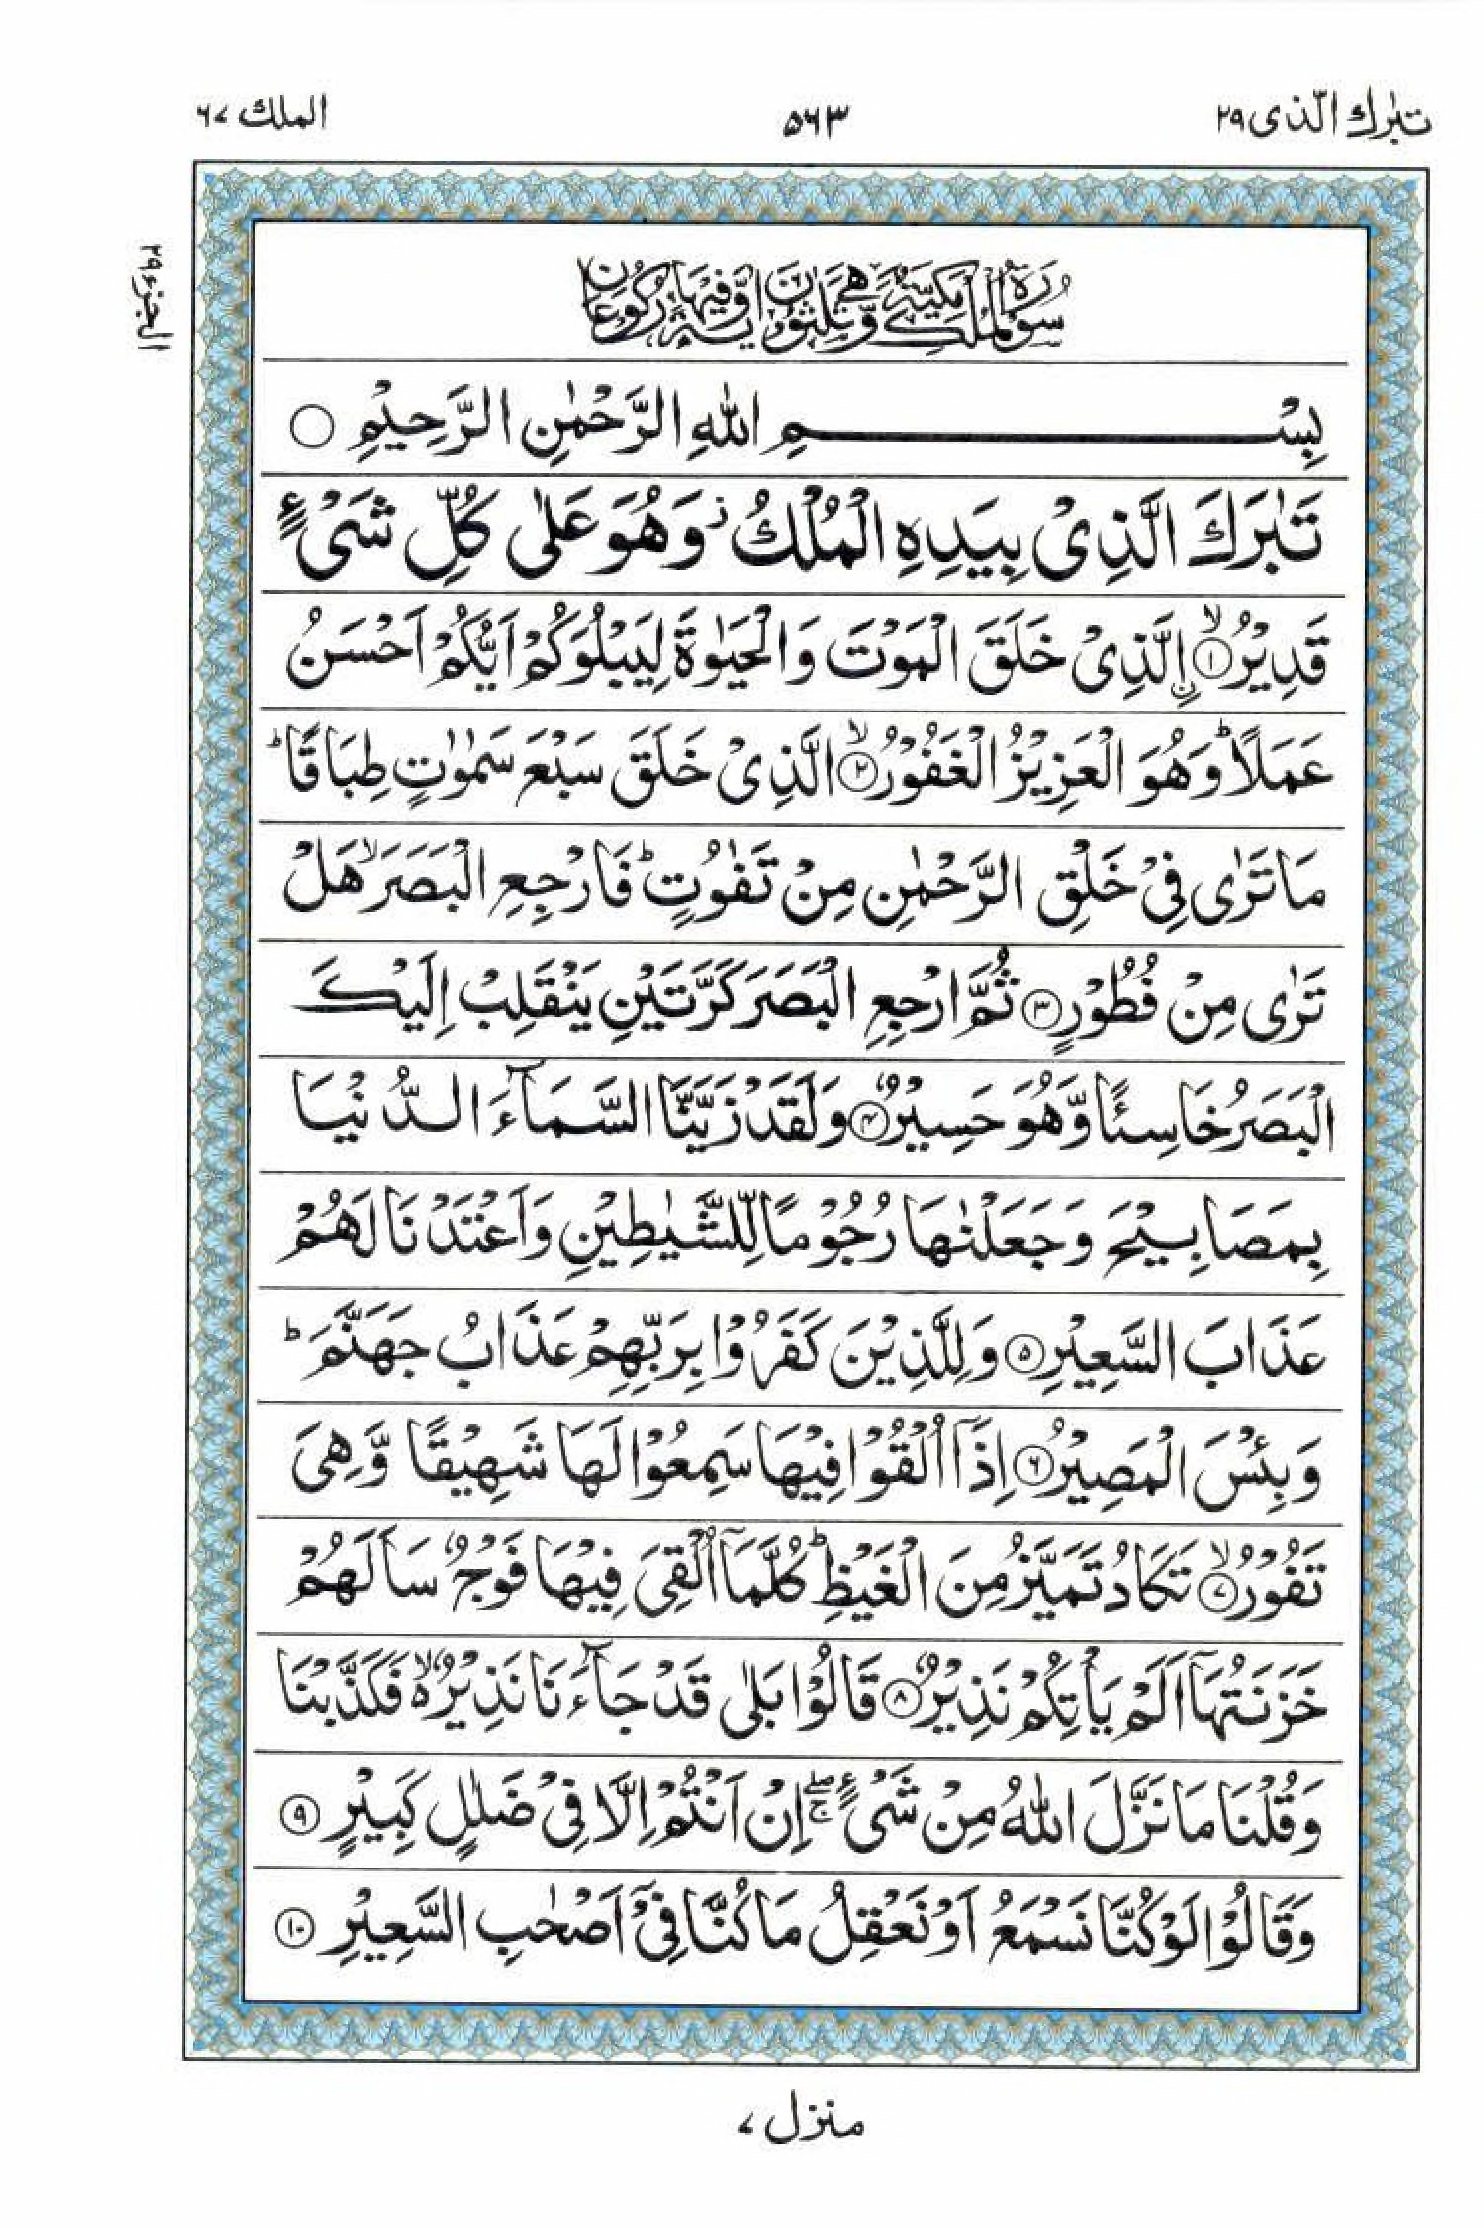 تبٰرك الّذی ٢٩
۵٦٣
الملك ٦٧
الجزء ٢٩
سُوْرَةُ الْمُلْكِ مَكِّيَّةٌ وَّهِيَ ثَلٰثُوْنَ اٰيَةً وَّفِيْهَا رُكُوْعَانِ
بِسْمِ اللّٰهِ الرَّحْمٰنِ الرَّحِيْمِ ۝
تَبٰرَكَ الَّذِیْ بِيَدِهِ الْمُلْكُ ۡ وَهُوَ عَلٰی كُلِّ شَیْءٍ
قَدِيْرُ ۙ﴿١﴾ اۨلَّذِیْ خَلَقَ الْمَوْتَ وَالْحَيٰوةَ لِيَبْلُوَكُمْ اَيُّكُمْ اَحْسَنُ
عَمَلًا ؕ وَهُوَ الْعَزِيْزُ الْغَفُوْرُ ۙ﴿٢﴾ الَّذِیْ خَلَقَ سَبْعَ سَمٰوٰتٍ طِبَاقًا ؕ
مَا تَرٰی فِیْ خَلْقِ الرَّحْمٰنِ مِنْ تَفٰوُتٍ ؕ فَارْجِعِ الْبَصَرَ ۙ هَلْ
تَرٰی مِنْ فُطُوْرٍ ﴿٣﴾ ثُمَّ ارْجِعِ الْبَصَرَ كَرَّتَيْنِ يَنْقَلِبْ اِلَيْكَ
الْبَصَرُ خَاسِئًا وَّهُوَ حَسِيْرٌ ﴿۴﴾ وَلَقَدْ زَيَّنَّا السَّمَآءَ الدُّنْيَا
بِمَصَابِيْحَ وَجَعَلْنٰهَا رُجُوْمًا لِّلشَّيٰطِيْنِ وَاَعْتَدْنَا لَهُمْ
عَذَابَ السَّعِيْرِ ﴿۵﴾ وَلِلَّذِيْنَ كَفَرُوْا بِرَبِّهِمْ عَذَابُ جَهَنَّمَ ؕ
وَبِئْسَ الْمَصِيْرُ ﴿٦﴾ اِذَآ اُلْقُوْا فِيْهَا سَمِعُوْا لَهَا شَهِيْقًا وَّهِیَ
تَفُوْرُ ۙ﴿٧﴾ تَكَادُ تَمَيَّزُ مِنَ الْغَيْظِ ؕ كُلَّمَآ اُلْقِیَ فِيْهَا فَوْجٌ سَاَلَهُمْ
خَزَنَتُهَآ اَلَمْ يَاْتِكُمْ نَذِيْرٌ ﴿٨﴾ قَالُوْا بَلٰی قَدْ جَآءَنَا نَذِيْرٌ ۙ۬ فَكَذَّبْنَا
وَقُلْنَا مَا نَزَّلَ اللّٰهُ مِنْ شَیْءٍ ۖۚ اِنْ اَنْتُمْ اِلَّا فِیْ ضَلٰلٍ كَبِيْرٍ ﴿٩﴾
وَقَالُوْا لَوْ كُنَّا نَسْمَعُ اَوْ نَعْقِلُ مَا كُنَّا فِیْۤ اَصْحٰبِ السَّعِيْرِ ﴿١٠﴾
منزل ٧